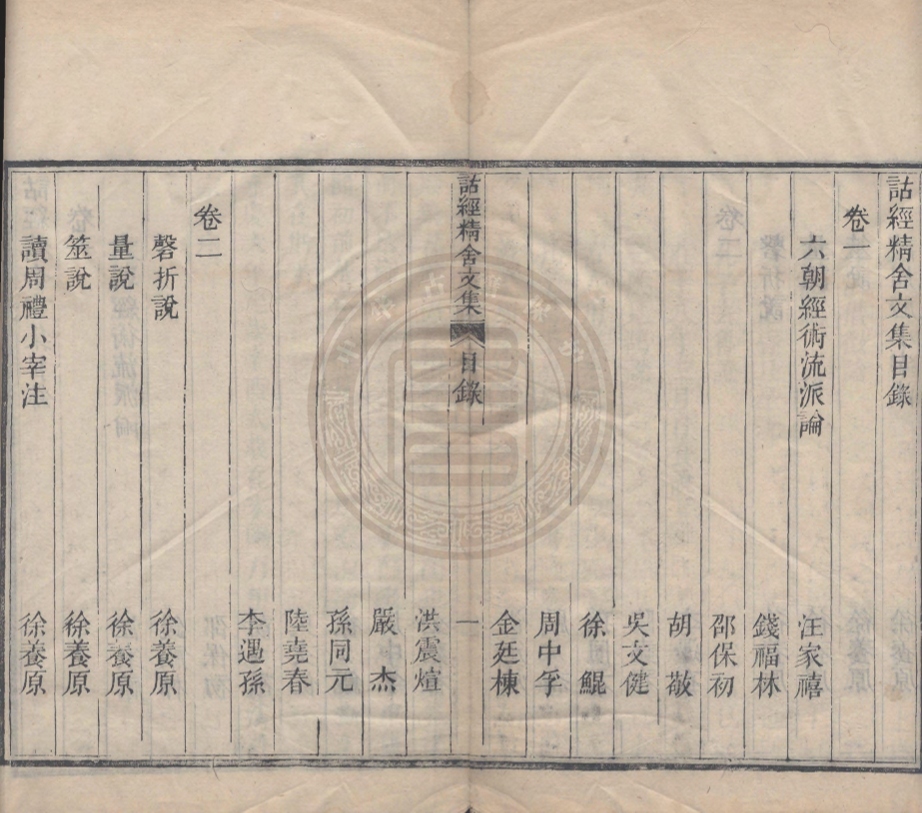 詁經精舍文集目錄
卷一
六朝經術流派論 汪家禧
錢福林
邵保初
胡敬
吳文健
徐鯤
周中孚
金廷棟
詁經精舍文集 目錄 一
洪震煊
嚴杰
孫同元
陸堯春
李遇孫
卷二
磬折說 徐養原
量說 徐養原
筮說 徐養原
讀周禮小宰注 徐養原